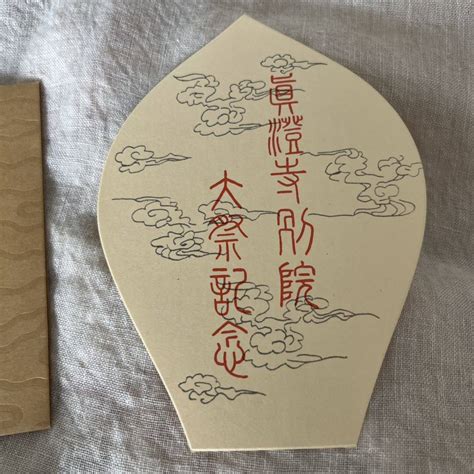 眞澄寺別院
大祭記念